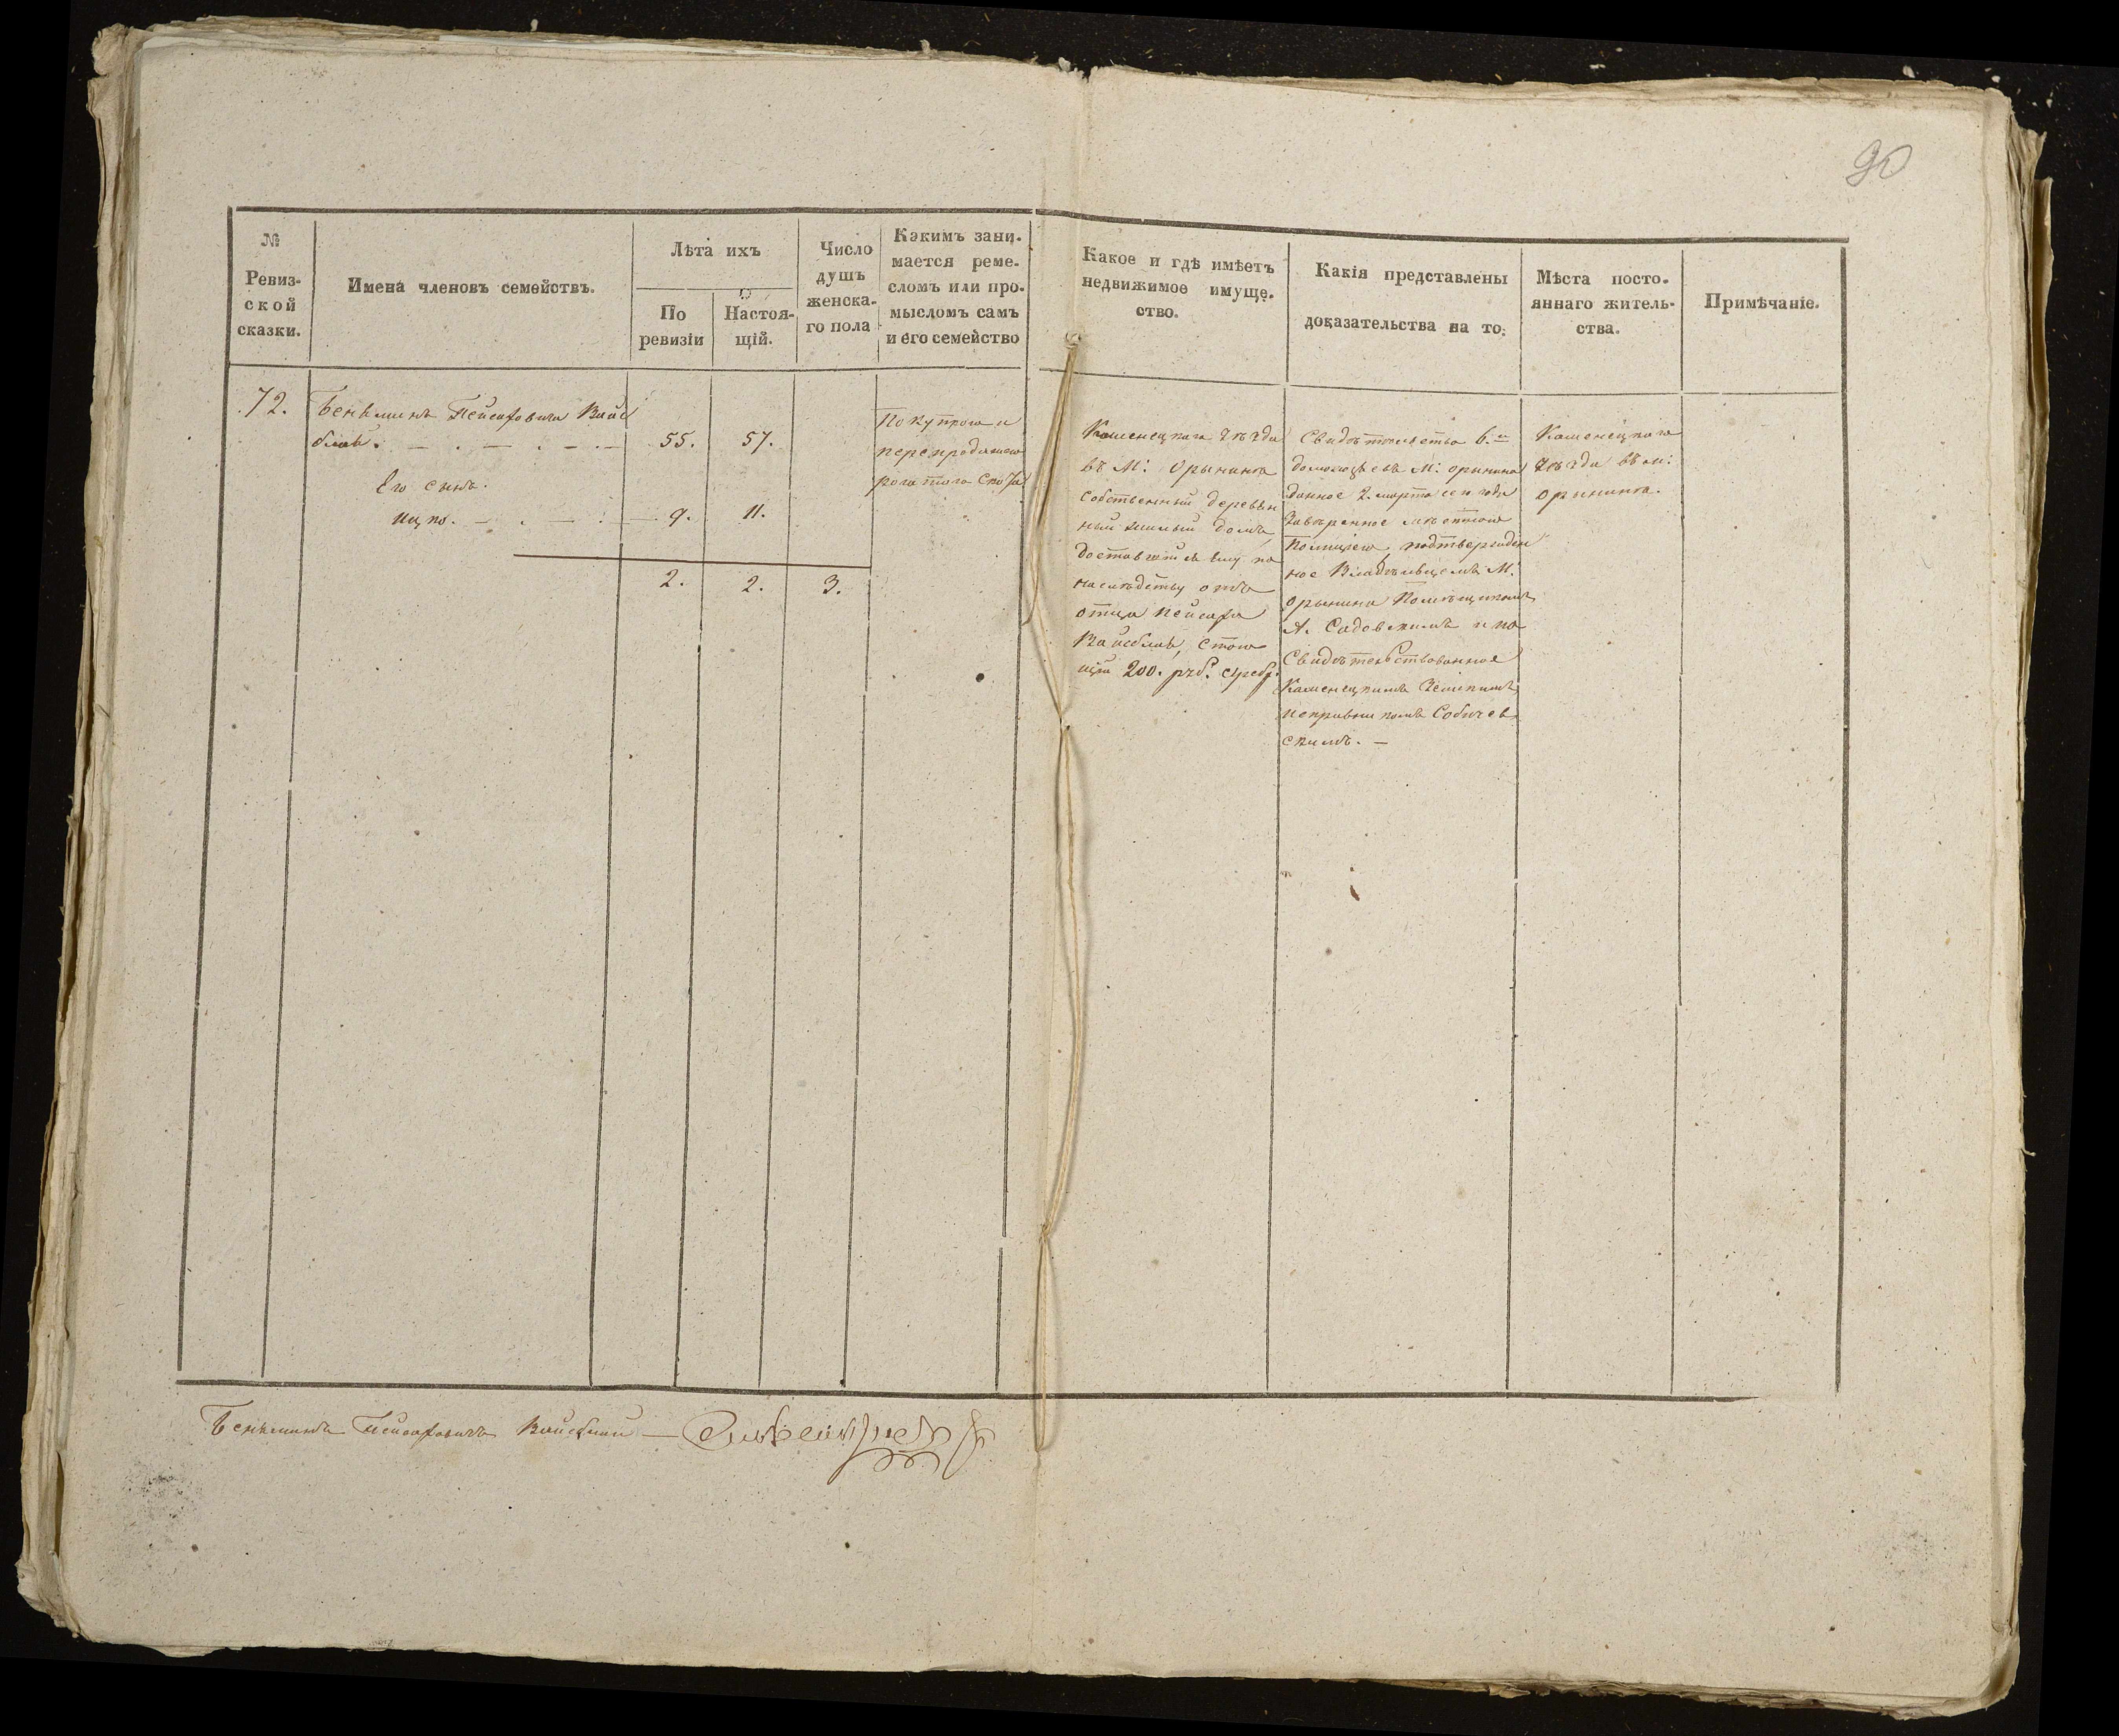 90
№
Ревиз-
ской
сказки.
Имена членовъ семействъ.
Лѣта ихъ
По
ревизіи
Настоя-
щій.
Число
душъ
женска-
го пола
Какимъ зани-
мается реме-
сломъ или про-
мысломъ самъ
и его семейство
Какое и гдѣ имѣетъ
недвижимое имуще-
ство.
Какія представлены
доказательства на то:
Мѣста посто-
яннаго житель-
ства.
Примѣчаніе.
72.
Беньминъ Пейсаховичъ Вайс
блатъ.
55.
57.
Его сынъ.
Ицко.
9.
11.
2.
2.
3.
Покупкою и
перепродажею
рогатого скота
Каменецкаго уѣзда
въ М: Орынинѣ
собственный деревян
ный жилый домъ
доставшійся ему по
наслѣдству отъ
отца Пейсаха
Вайсблатъ, стою
щій 200. руб. сереб.
Свидѣтельство 6.и
домохозяевъ М: Орынина
данное 2. марта сего года
завѣренное мѣстною
Полиціею, подтвержден
ное Владѣльцемъ М:
Орынина Помѣщикомъ
А. Садовскимъ и по
свидѣтельствованное
Каменецкимъ Земскимъ
исправникомъ Собичев
скимъ. —
Каменецкаго
уѣзда въ м:
Орынинѣ.
Беньминъ Пейсаховичъ Вайсблат —